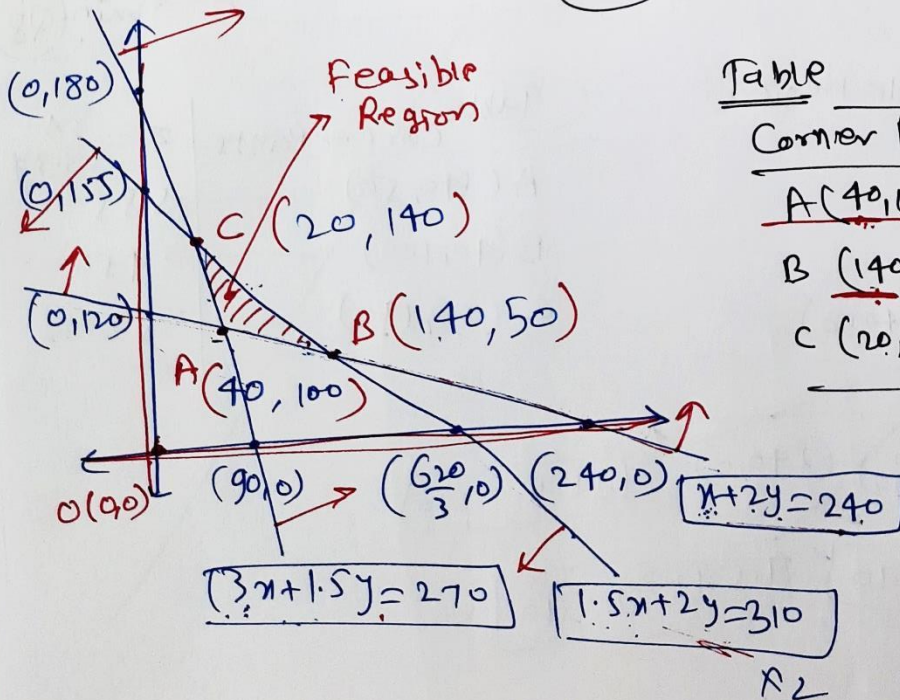 (0,180)
Feasible
Region
(0,155)
C (20, 140)
(0,120)
B (140, 50)
A (40, 100)
O(0,0)
(90,0)
(620/3, 0)
(240,0)
x+2y=240
3x+1.5y=270
1.5x+2y=310
x2
Table
Corner
A(40,1
B (140
C (20,